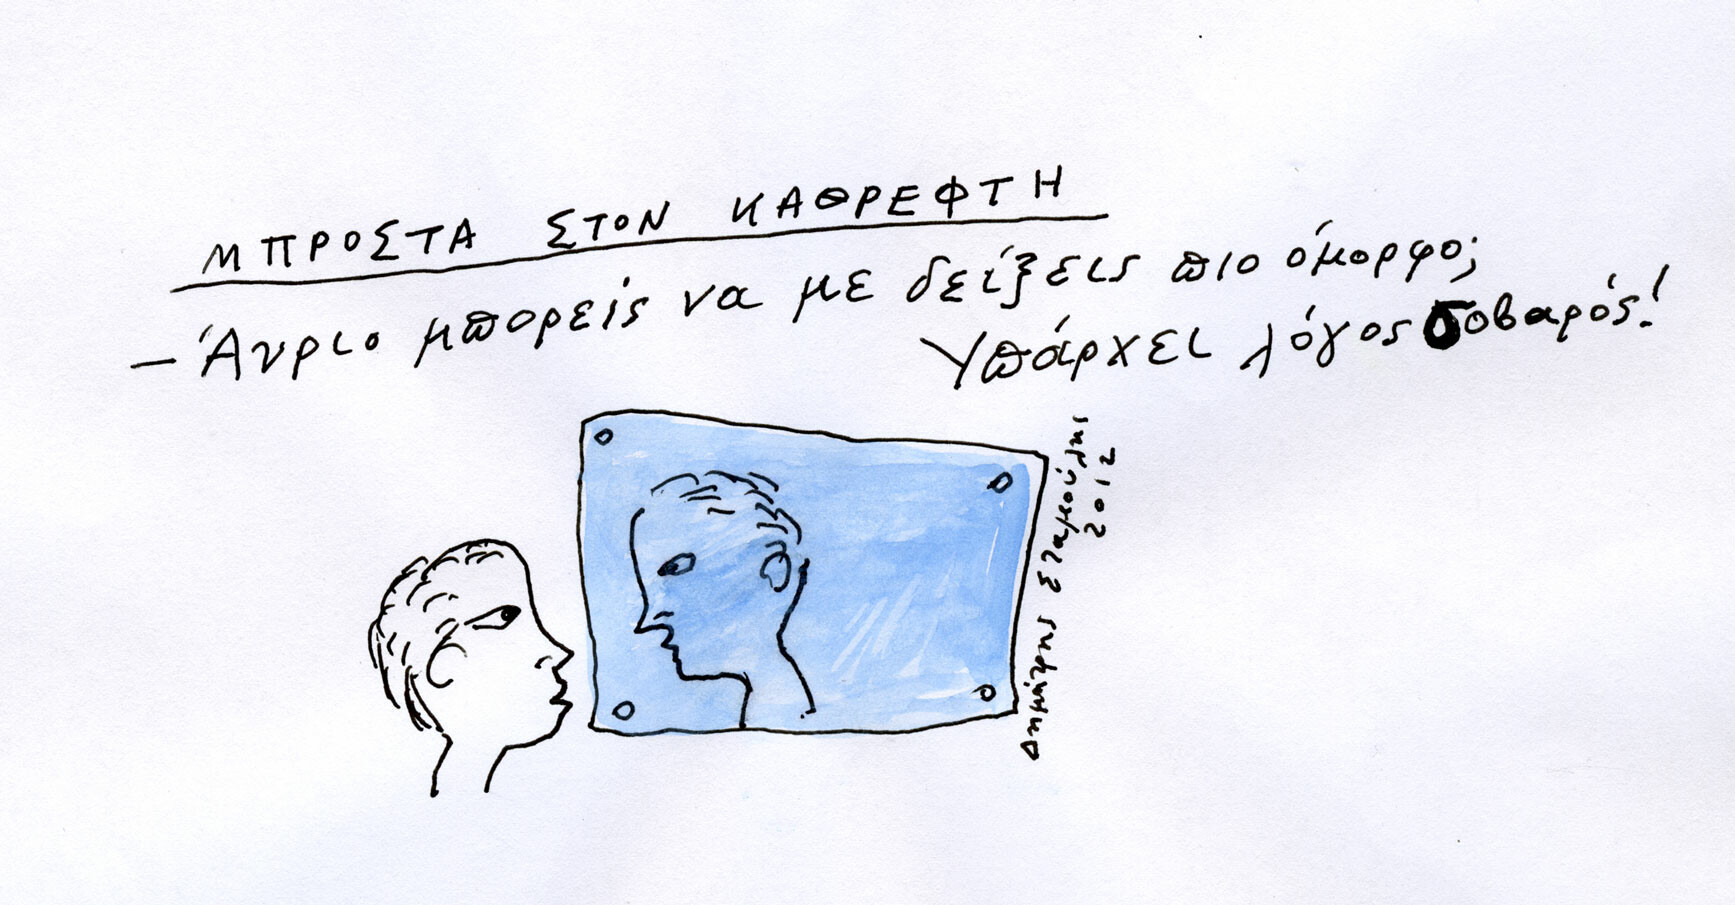 ΜΠΡΟΣΤΑ ΣΤΟΝ ΚΑΘΡΕΦΤΗ
– Άυριο μπορείς να με δείξεις πιο όμορφο;
Υπάρχει λόγος σοβαρός!
Δημήτρης Σταμούλης
2012